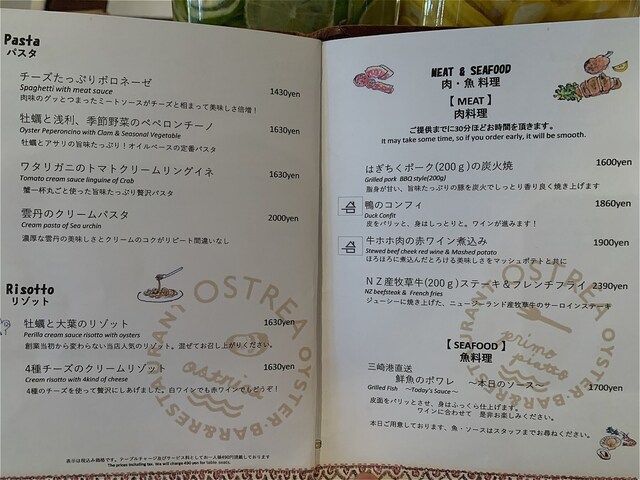 Pasta
パスタ
チーズたっぷりボロネーゼ
Spaghetti with meat sauce
1430yen
肉味のグッとつまったミートソースがチーズと相まって美味しさ倍増！
牡蠣と浅利、季節野菜のペペロンチーノ
Oyster Peperoncino with Clam & Seasonal Vegetable
1630yen
牡蠣とアサリの旨味たっぷり！オイルベースの定番パスタ
ワタリガニのトマトクリームリングイネ
Tomato cream sauce linguine of Crab
1630yen
蟹一杯丸ごと使った旨味たっぷり贅沢パスタ
雲丹のクリームパスタ
Cream pasta of Sea urchin
2000yen
濃厚な雲丹の美味しさとクリームのコクがリピート間違いなし
Risotto
リゾット
牡蠣と大葉のリゾット
Perilla cream sauce risotto with oysters
1630yen
創業当初から変わらない当店人気のリゾット。混ぜてお召し上がりください。
4種チーズのクリームリゾット
Cream risotto with 4kind of cheese
1630yen
4種のチーズを使って贅沢にしあげました。白ワインでも赤ワインでもどうぞ！
表示は税込み価格です。テーブルチャージ及びサービス料としてお一人様490円頂戴しております
The prices including tax. We will charge 490 yen for table seats.
MEAT & SEAFOOD
肉・魚 料理
【 MEAT 】
肉料理
ご提供までに30分ほどお時間を頂きます。
It may take some time, so if you order early, it will be smooth.
はぎちくポーク(200ｇ)の炭火焼
1600yen
Grilled pork BBQ style(200g)
脂身が甘い、旨味たっぷりの豚を炭火でしっとり香り良く焼き上げます
鴨のコンフィ
1860yen
Duck Confit
皮をパリッと、身はしっとりと。ワインが進みます！
牛ホホ肉の赤ワイン煮込み
1900yen
Stewed beef cheek red wine & Mashed potato
ほろほろに煮込んだとろける美味しさをマッシュポテトと共に
ＮＺ産牧草牛(200ｇ)ステーキ＆フレンチフライ
2390yen
NZ beefsteak & French fries
ジューシーに焼き上げた、ニュージーランド産牧草牛のサーロインステーキ
【 SEAFOOD 】
魚料理
三崎港直送
鮮魚のポワレ ～本日のソース～
1700yen
Grilled Fish ～Today's Sauce～
皮面をパリッとさせ、身はふっくら仕上げます。
ワインに合わせて 是非お楽しみください。
本日ご用意しております、魚・ソースはスタッフまでお尋ねください。
OSTREA
OYSTER・BAR&RESTAURANT
primo piatto
OSTREA
OYSTER・BAR&RESTAURANT